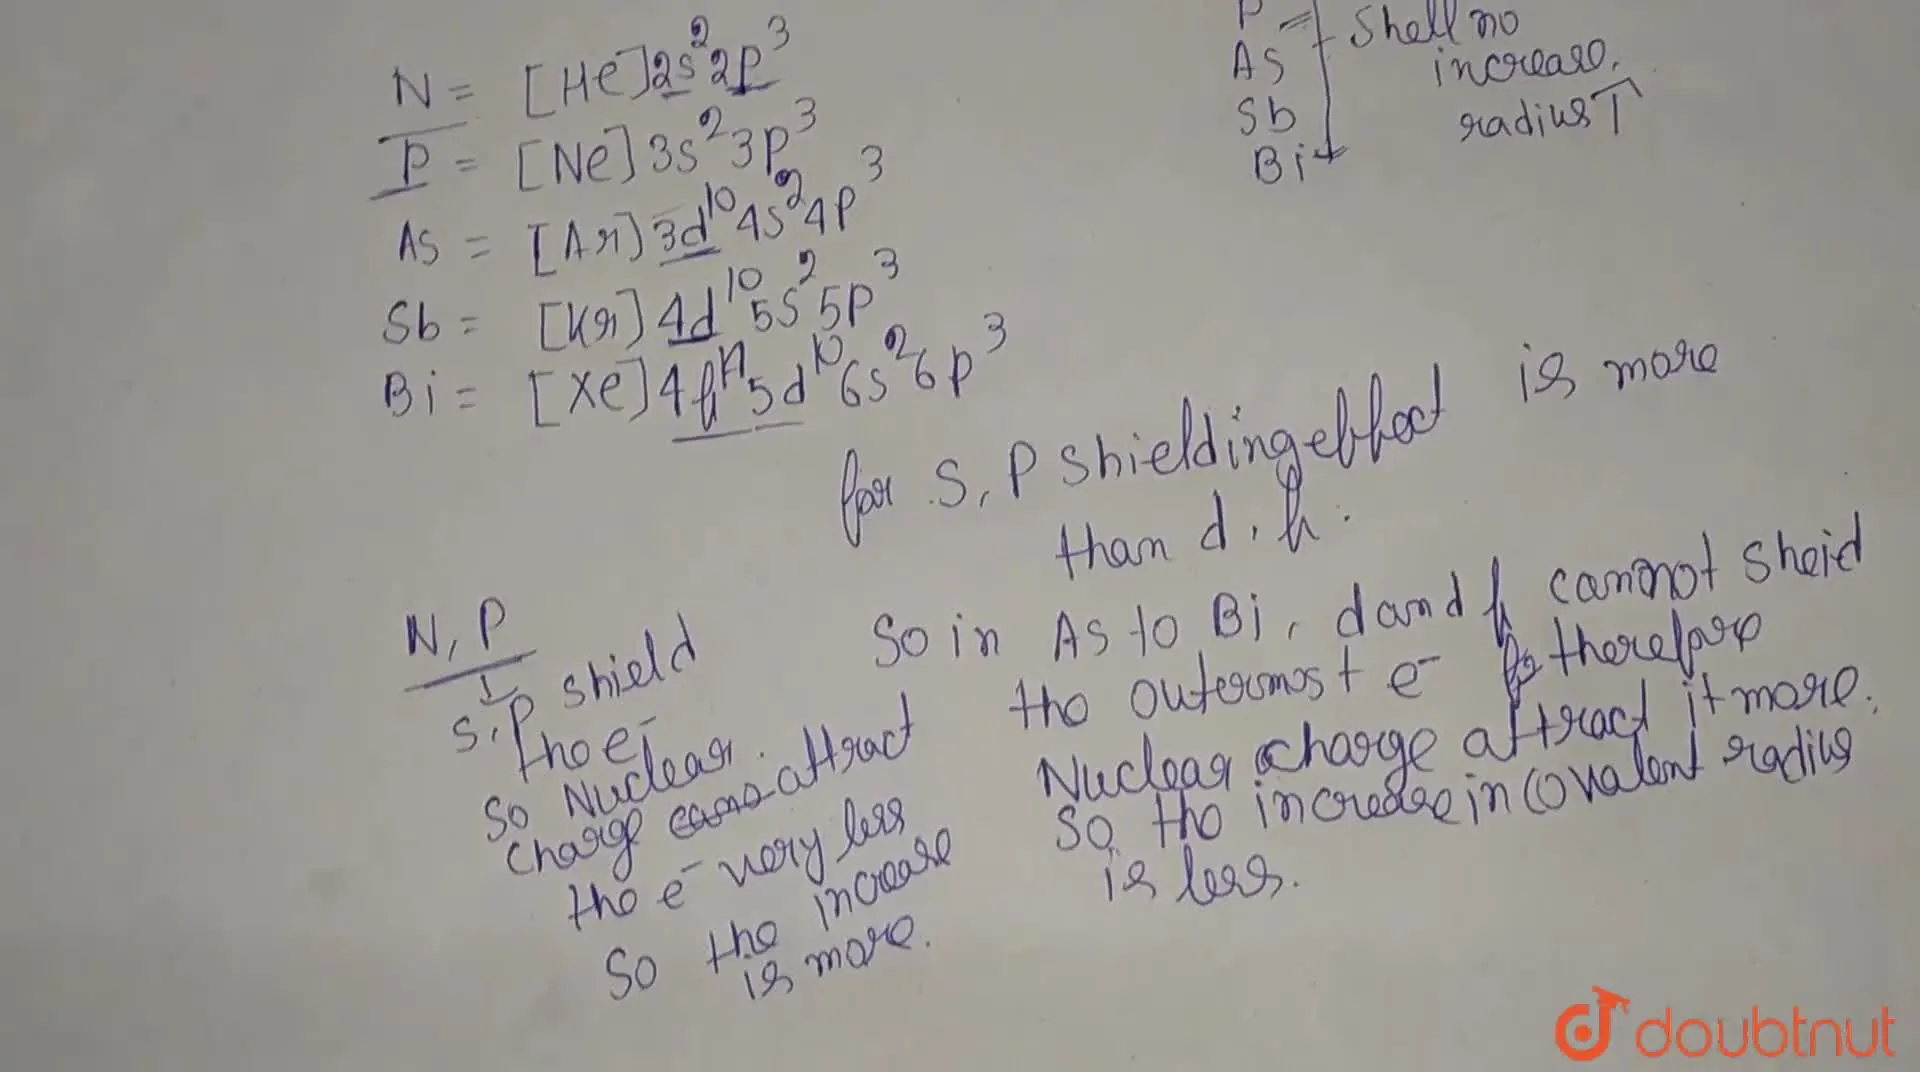 N = [He]2s²2p³
P = [Ne]3s²3p³
As = [Ar]3d¹⁰4s²4p³
Sb = [Kr]4d¹⁰5s²5p³
Bi = [Xe]4f¹⁴5d¹⁰6s²6p³
P
As
Sb
Bi
Shell no
increase.
radius↑
for s, p shielding effect is more
than d, f.
N, P
↓
s, p shield
the e⁻
So Nuclear
charge attract
the e⁻ very less
So the increase
is more.
So in As to Bi, d and f cannot sheid
the outermost e⁻ therefore
Nuclear charge attract it more.
So the increase in covalent radius
is less.
doubtnut